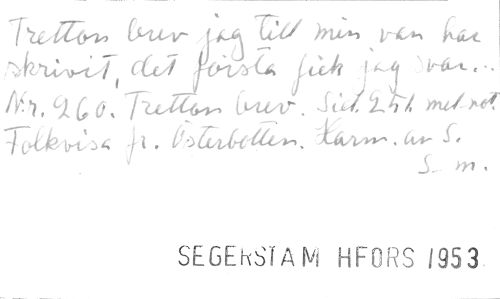 Tretton brev jag till min vän har
skrivit, det första fick jag svar...
Nr. 260. Tretton brev. Sid. 241 mel. not.
Folkvisa fr. Österbotten. Harm. av S.
S. m.
SEGERSTAM HFORS 1953.